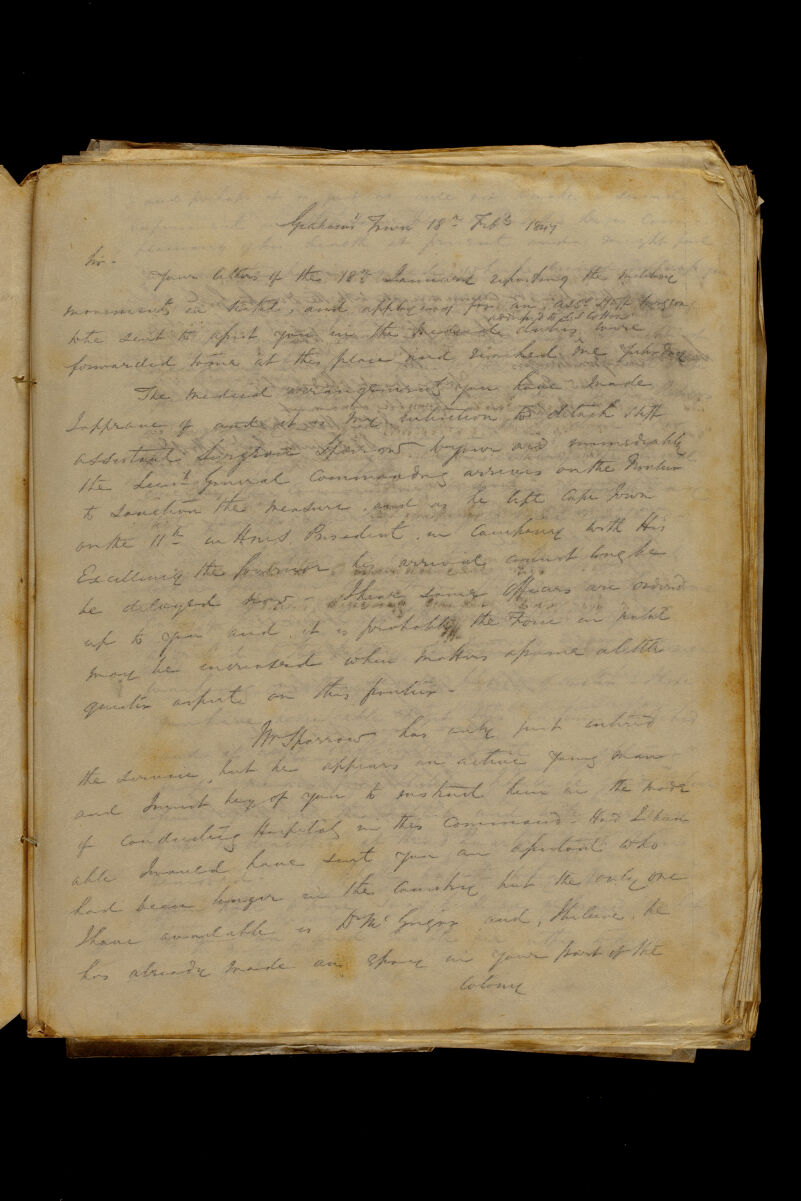 Graham's Town 18th Feby 1847
Sir.
Your letter of the 18th January reporting the military
movements in Natal, and applying for an Asst Staff Surgeon
to be sent to assist you in the medical duties were
forwarded to me at this place and reached me yesterday
The medical arrangements you have made
I approve of and it is my intention to detach Staff
assistant Surgeon Sparrow to you and immediately
the Lieut General Commanding arrives on the Frontier
to sanction the measure and as he left Cape Town
on the 11th in H.M.S. President in company with His
Excellency the Governor his arrival cannot long be
be delayed now - I hear some Officers are ordered
up to you and it is probable the Force in Natal
may be increased when matters assume a little
quieter aspect on this frontier -
Mr Sparrow has only just entered
the service, but he appears an active young man
and I must beg of you to instruct him in the mode
of conducting Hospitals in this Command - Had I been
able I would have sent you an assistant who
had been longer in the Country but the only one
I have available is Dr McGrigor and, I believe, he
has already made an in your part of the
Colony